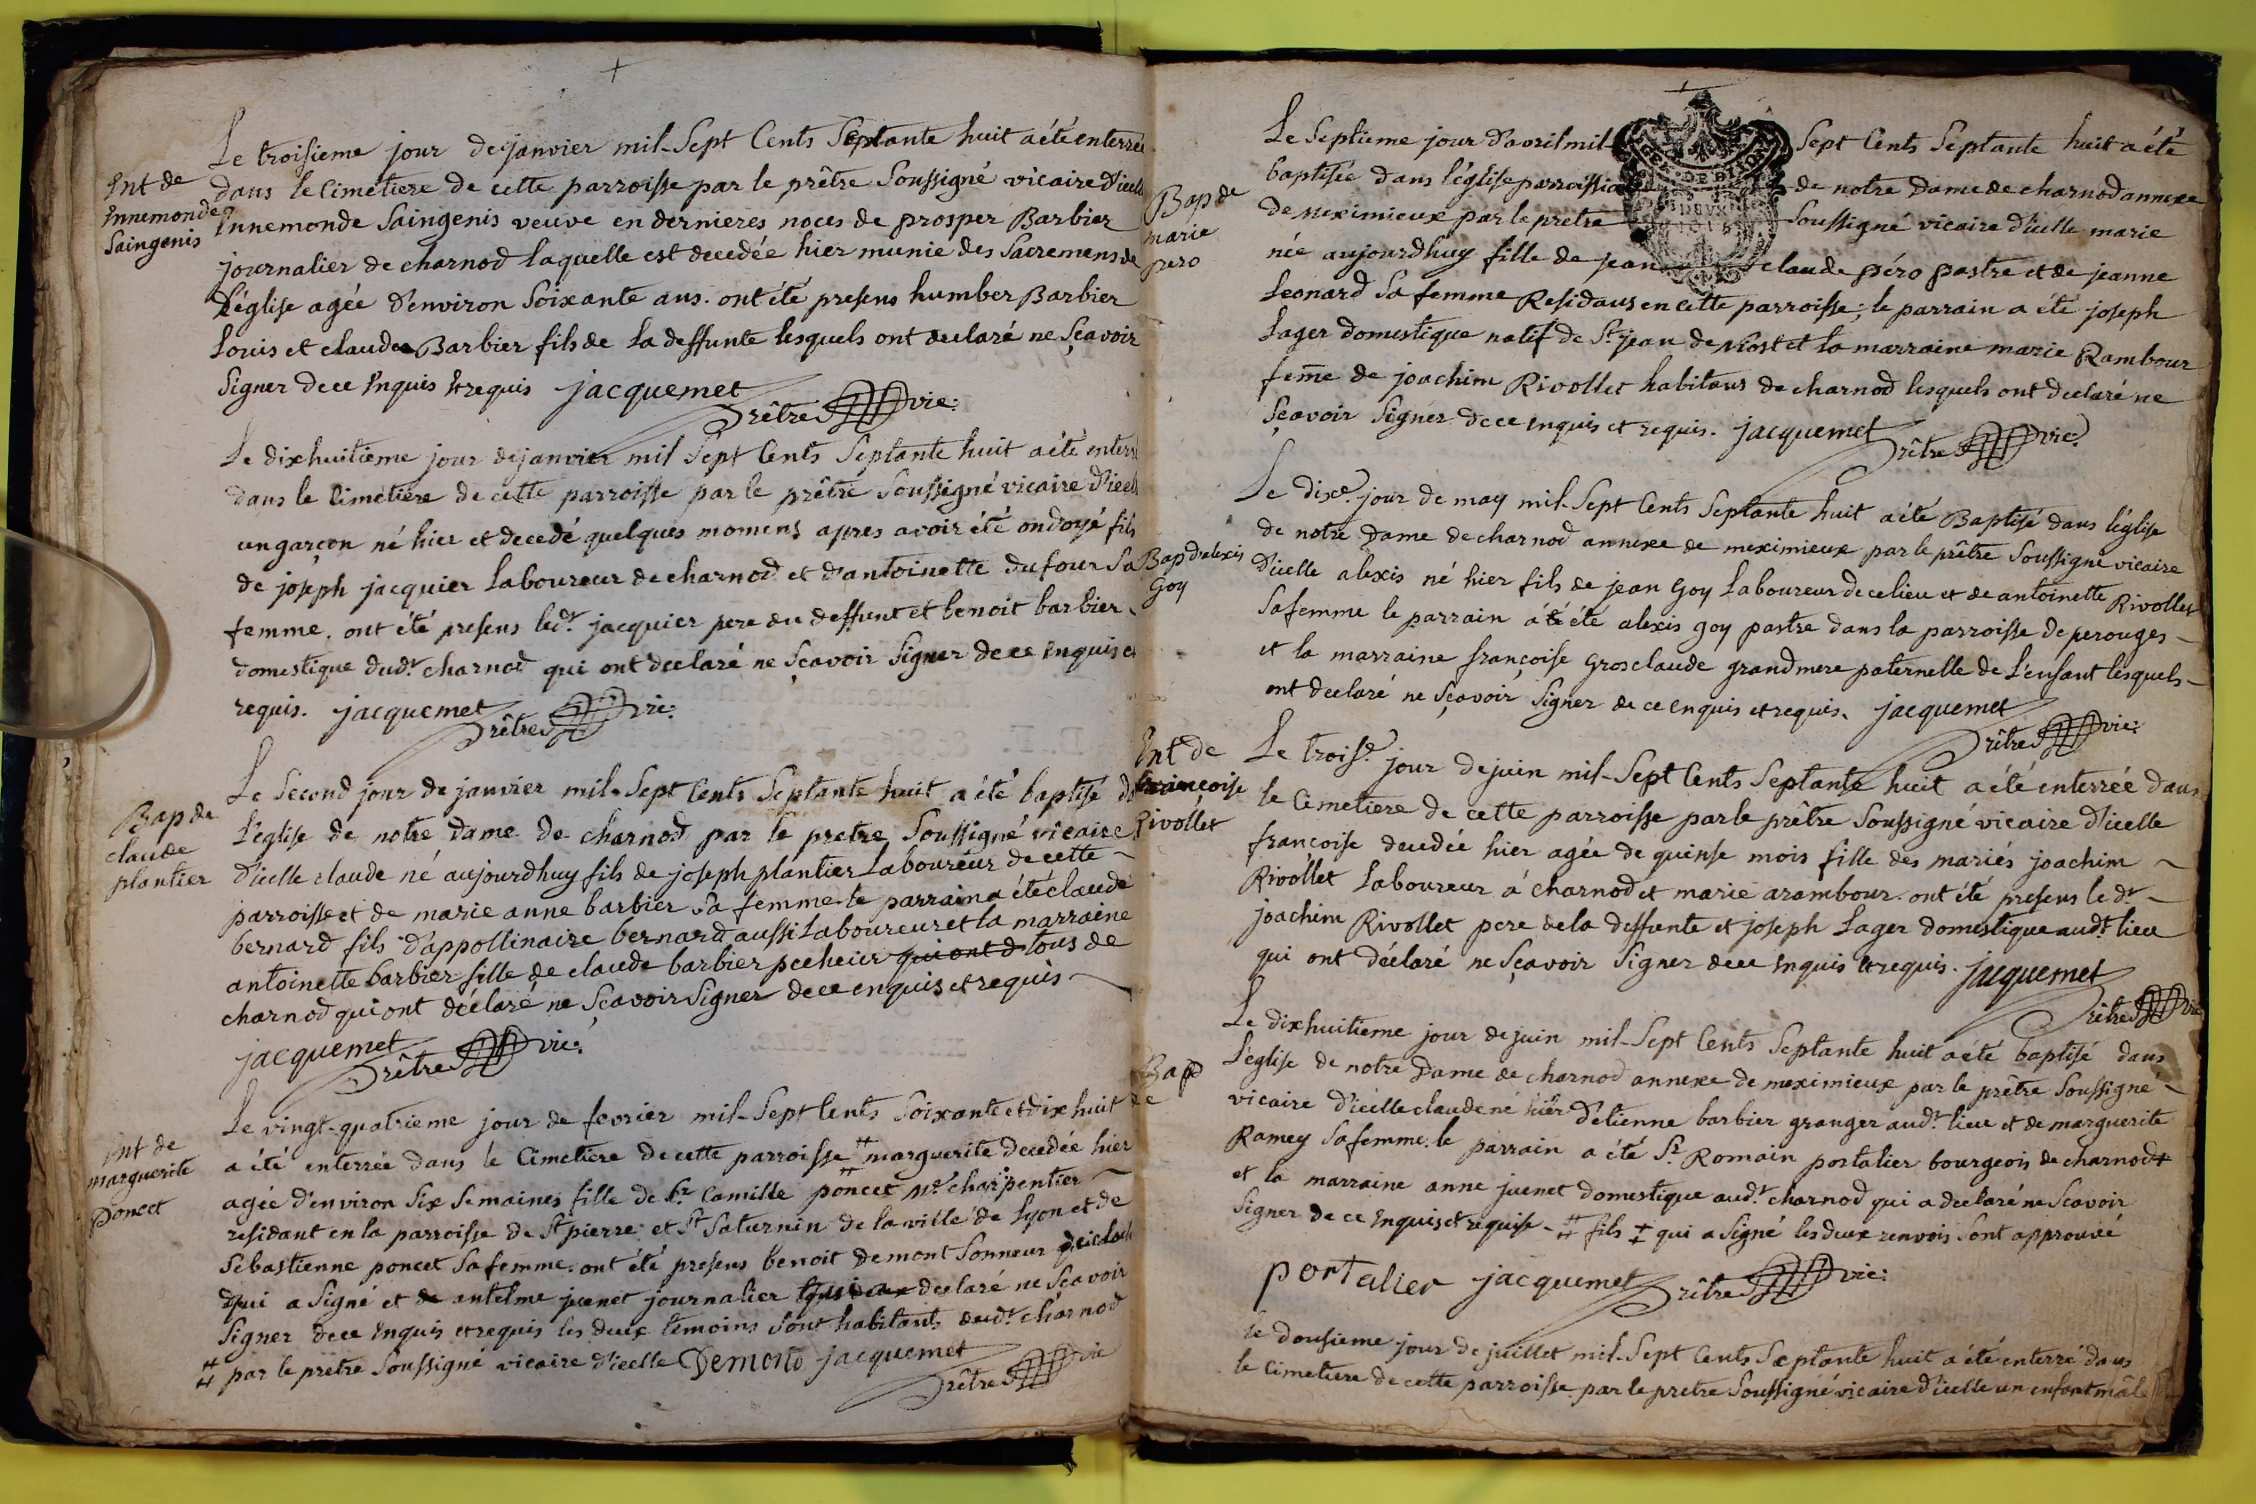 Le troisieme jour de janvier mil-Sept Cents Septante huit a été enterrée
Ent de
Ennemonde
Saingenis
dans le Cimetiere de cette parroisse par le prêtre Soussigné vicaire d'icelle
Ennemonde Saingenis veuve en dernieres noces de prosper Barbier
journalier de charnod laquelle est decedée hier munie des Sacremens de
L'église agée d'environ Soixante ans. ont été presens humber Barbier
Louis et claude Barbier fils de la deffunte lesquels ont declaré ne Sçavoir
Signer de ce Enquis et requis jacquemet
prêtre vic:
Le dixhuitieme jour de janvier mil Sept Cents Septante huit a été enterré
dans le Cimétiere de cette parroisse par le prêtre Soussigné vicaire d'icelle
un garçon né hier et decedé quelques momens apres avoir été ondoyé fils
de joseph jacquier Laboureur de charnod et d'antoinette dufour Sa
femme. ont été presens led.t jacquier pere du deffunt et benoit barbier
domestique dud.t charnod qui ont declaré ne Sçavoir Signer de ce Enquis et
requis. jacquemet
prêtre vic:
Bap de
claude
plantier
Le Second jour de janvier mil-Sept Cents Septante huit a été baptisé
L'église de notre dame de charnod par le pretre Soussigné vicaire
d'icelle claude né aujourdhuy fils de joseph plantier Laboureur de cette
parroisse et de marie anne barbier Sa femme. le parrain a été claude
bernard fils d'appollinaire bernard aussi Laboureur et la marraine
antoinette barbier fille de claude barbier pecheur qui ont d tous de
charnod qui ont déclaré ne Sçavoir Signer de ce enquis et requis
jacquemet
prêtre vic:
Ent de
marguerite
Poncet
Le vingt-quatrieme jour de fevrier mil-Sept Cents Soixante et dix huit
a été enterrée dans le Cimetiere de cette parroisse # marguerite decedée hier
agée d'environ Six Semaines fille de S.r Camille poncet M.e charpentier
residant en la parroisse de S.t pierre et S.t Saturnin de la ville de Lyon et de
Sebastienne poncet Sa femme. ont été presens benoit demont Sonneur
qui a Signé et de antelme juenet journalier declaré ne Sçavoir
Signer de ce Enquis et requis les deux temoins Sont habitants dud.t charnod
# par le pretre Soussigné vicaire d'icelle Demont jacquemet
prêtre vic
Le Septieme jour d'avril mil- Sept Cents Septante huit a été
Bap de
marie
pero
baptisée dans l'église parroissiale de notre Dame de charnod annexe
de meximieux par le pretre Soussigné vicaire d'icelle marie
née aujourdhuy fille de jean claude péro pastre et de jeanne
Leonard Sa femme Residans en cette parroisse; le parrain a été joseph
Lager domestique natif de S.t jean de Niost et la marraine marie Rambour
feme de joachim Rivollet habitans de charnod lesquels ont declaré ne
Sçavoir Signer de ce enquis et requis. jacquemet
prêtre vic:
Bap d'alexis
Goy
Le dix.e jour de may mil-Sept Cents Septante huit a été Baptisé dans l'église
de notre Dame de charnod annexe de meximieux par le prêtre Soussigné vicaire
d'icelle alexis né hier fils de jean Goy Laboureur de ce lieu et de antoinette Rivollet
Sa femme le parrain a été alexis goy pastre dans la parroisse de perouges
et la marraine françoise Grosclaude grandmere paternelle de L'enfant lesquels
ont declaré ne Sçavoir Signer de ce enquis et requis. jacquemet
prêtre vic:
Ent de
françoise
Rivollet
Le trois.e jour de juin mil-Sept Cents Septante huit a été enterrée dans
le Cimetiere de cette parroisse par le prêtre Soussigné vicaire d'icelle
françoise decedée hier agée de quinse mois fille des mariés joachim
Rivollet Laboureur á charnod et marie arambour. ont été presens le d.t
joachim Rivollet pere de la deffunte et joseph Lager domestique aud.t lieu
qui ont déclaré ne Sçavoir Signer de ce Enquis et requis. jacquemet
prêtre vic
Bap
de
Le dixhuitieme jour de juin mil-Sept Cents Septante huit a été baptisé dans
L'eglise de notre Dame de charnod annexe de meximieux par le prêtre Soussigné
vicaire d'icelle claude né hier # d'etienne barbier granger aud.t lieu et de marguerite
Ramey Sa femme. le parrain a été S.r Romain portalier bourgeois de charnod ‡
et la marraine anne juenet domestique aud.t charnod qui a declaré ne Scavoir
Signer de ce Enquis et requise - # fils ‡ qui a Signé les deux renvois Sont approuvé
portalier jacquemet prêtre vic:
Le dousieme jour de juillet mil-Sept Cents Septante huit a été enterré dans
le Cimetiere de cette parroisse par le pretre Soussigné vicaire d'icelle un enfant mâle